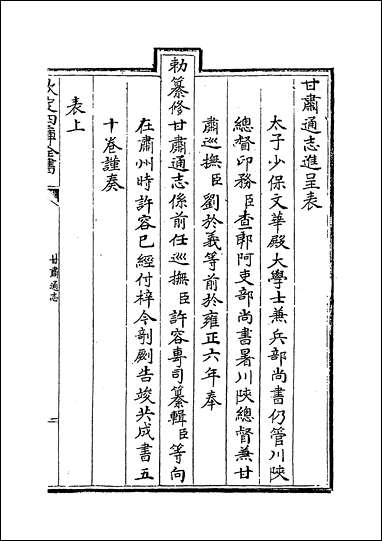 甘肅通志進呈表
太子少保文華殿大學士兼兵部尚書仍管川陝
總督印務臣查郎阿吏部尚書署川陝總督兼甘
肅巡撫臣劉於義等前於雍正六年奉
勅纂修甘肅通志係前任巡撫臣許容專司纂輯臣等向
在肅州時許容已經付梓今剞劂告竣共成書五
十卷謹奏
表上
欽定四庫全書
甘肅通志